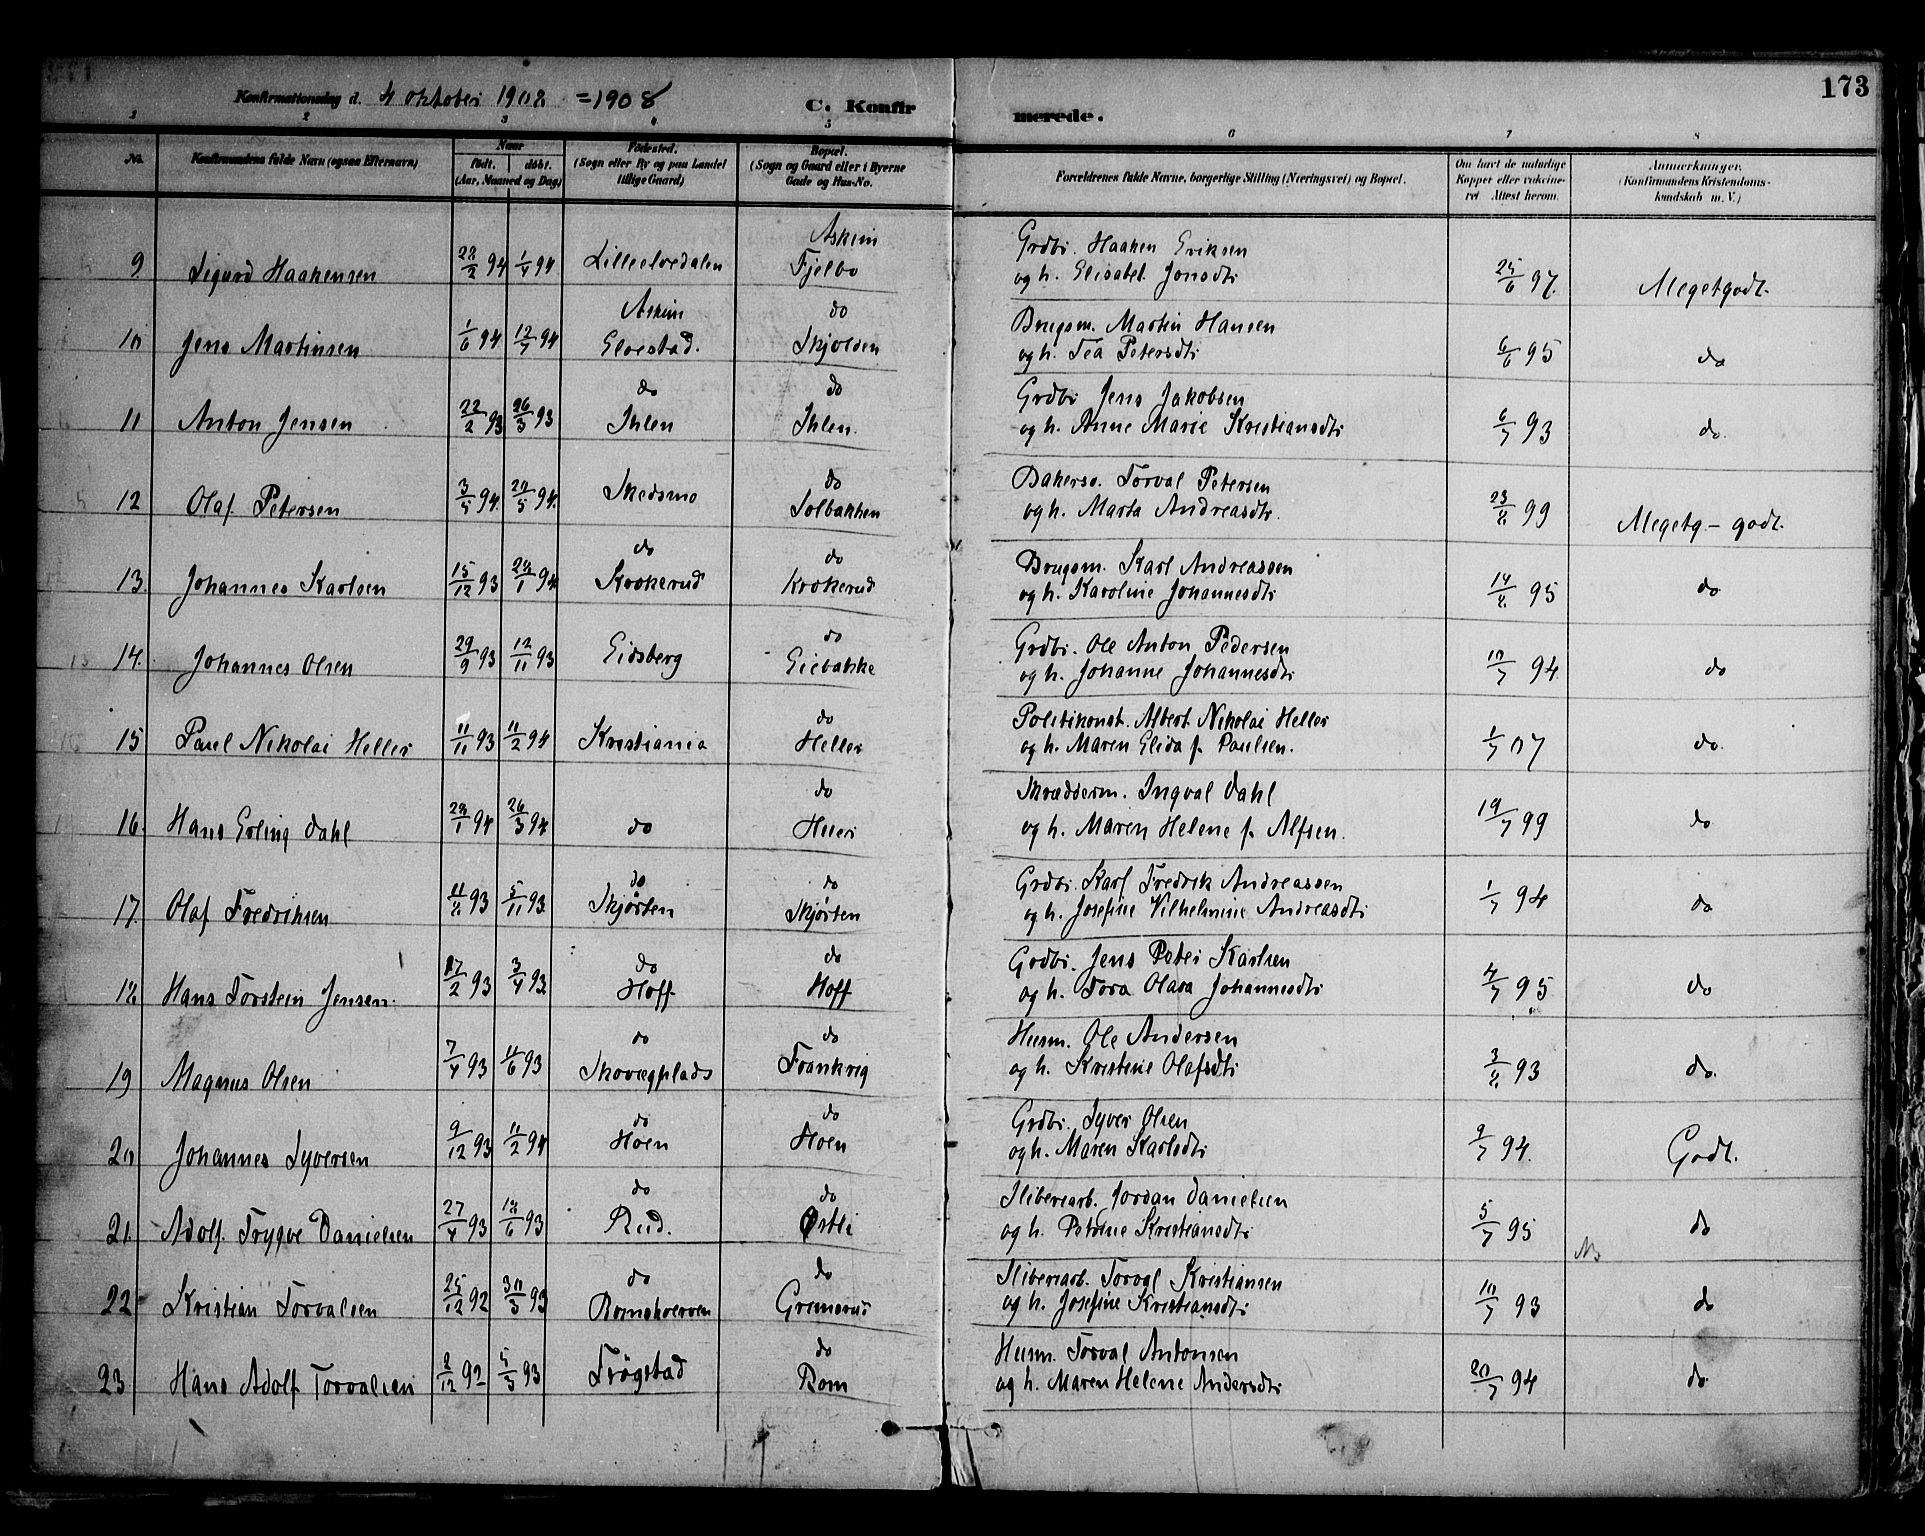 173
Konfirmationsdag d. 4 oktober 1908 = 1908 C. Konfirmerede.
1 2 3 4 5 6 7 8
No. Konfirmandens fulde Navn (ogsaa Efternavn) Naar født. døbt. (Aar, Maaned og Dag) Fødested. (Sogn eller By og paa Landet tillige Gaard) Bopæl. (Sogn og Gaard eller i Byerne Gade og Hus-No. Forældrenes fulde Navne, borgerlige Stilling (Næringsvei) og Bopæl. Om havt de naturlige Kopper eller vakcineret Attest herom. Anmærkninger. (Konfirmandens Kristendomskundskab m. V.)
Askim Grdbr. Haaken Eriksen
9 Sigurd Haakensen 28/2 94 1/4 94 Lilleelvedalen Fjelbo og h. Elisabet Jonsdtr 25/6 97. Megetgodt.
Askim do Brugsm. Martin Hansen
10 Jens Martinsen 1/6 94 12/7 94 Elvestad. Skjolden og h. Tea Petersdtr 6/6 95 do
do do Grdbr Jens Jakobsen
11 Anton Jensen 22/2 93 26/3 93 Ihlen Ihlen. og h. Anne Marie Kristiansdtr 6/7 93 do.
do Bakersv. Torval Petersen
12 Olaf Petersen 3/5 94. 20/5 94. Skedsmo Solbakken og h. Marta Andreasdtr. 23/8 99 Megetg- godt.
do do Brugsm. Karl Andreassen
13. Johannes Karlsen 15/12 93 28/1 94 Krokerud Krokerud og h. Karoline Johannesdtr 14/8 95 do
do Grdbr. Ole Anton Pedersen
14. Johannes Olsen 29/9 93 12/11 93 Eidsberg Giebakke og h. Johanne Johannesdtr 10/7 94 do
do Politikonst. Albert Nikolai Heller
15 Paul Nikolai Heller 11/11 93 11/2 94 Kristiania Heller og h. Maren Elida f. Paulsen. 1/7 07 do.
do Skræddderm. Ingval Dahl
16. Hans Erling Dahl 28/1 94 26/3 94 do Huer og h. Maren Helene f. Alfsen. 19/7 99 do
do do Grdbr. Karl Fredrik Andreassen
17. Olaf Fredriksen 11/8 93 5/11 93 Skjørten Skjørten og h. Josefine Vilhelmine Andreasdtr 1/7 94 do
do do Grdbr. Jens Peter Karlsen
18. Hans Torstein Jensen. 17/2 93 3/4 93 Hoff Hoff og h. Tora Olava Johannesdtr 4/7 95 do
do do Husm. Ole Andersen
19 Magnus Olsen 7/4 93 11/6 93 Skovegplads Frankrig og h. Kristine Olafsdtr 3/8 93 do.
do do Grdbr. Syver Olsen
20 Johannes Syversen 9/12 93 11/2 94 Hoen Hoen og h. Maren Karlsdtr 9/7 94. Godt.
do do Sliberiarb. Jordan Danielsen
21. Adolf Trygve Danielsen 27/4 93 18/6 93 Rud. Østli og h. Petrine Kristiansdtr 5/7 95 do
do do Sliberiarb. Torval Kristiansen
22 Kristian Torvalsen 25/12 92 30/3 93 Romskverven Grimsrud og h. Josefine Kristiansdtr 10/7 93 do
do Husm. Torval Antonsen
23 Hans Adolf Torvalsen 8/12 92 5/3 93 Trøgstad Rom og h. Maren Helene Andersdtr 20/7 94 do